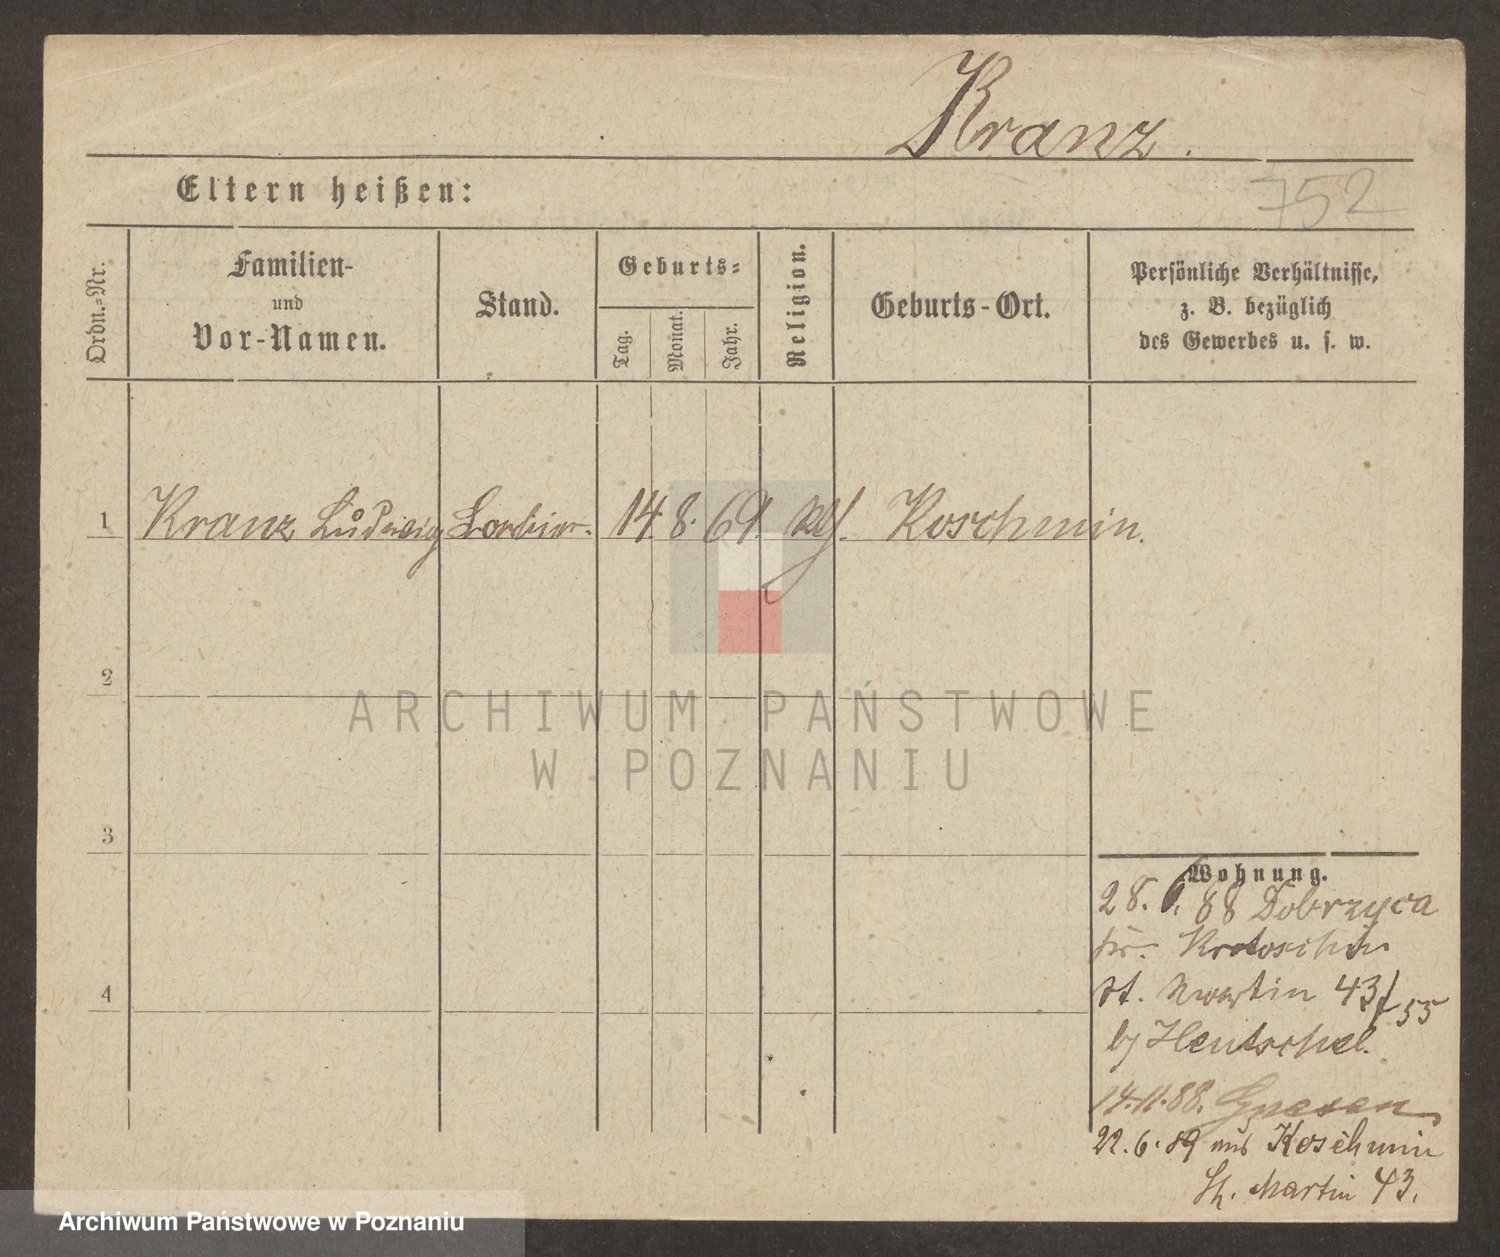 Kranz.
Eltern heißen:
752
Ordn.-Nr.
Familien-
und
Vor-Namen.
Stand.
Geburts-
Tag.
Monat.
Jahr.
Religion.
Geburts-Ort.
Persönliche Verhältnisse,
z. B. bezüglich
des Gewerbes u. s. w.
1 Kranz Ludwig Barbier. 14 8. 69. Koschmin.
2
ARCHIWUM PAŃSTWOWE
W POZNANIU
3
Wohnung.
28. 6. 88 Dobrzyca
Krotoschin
4
St. Martin 43/55
bj Hentschel.
14.11.88. Gnesen
22.6.89 aus Koschmin
St. Martin 43.
Archiwum Państwowe w Poznaniu